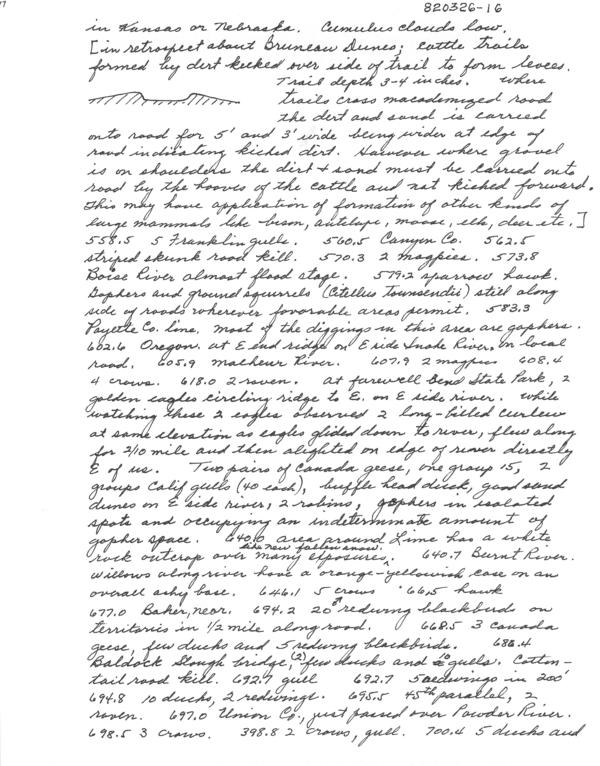 820326-16
in Kansas or Nebraska. Cumulus clouds low.
[in retrospect about Bruneau Dunes; cattle trails
formed by dirt kicked over side of trail to form levees.
Trail depth 3-4 inches. Where
trails cross macadamized road
the dirt and sand is carried
onto road for 5' and 3' wide being wider at edge of
road indicating kicked dirt. However where gravel
is on shoulders the dirt + sand must be carried onto
road by the hooves of the cattle and not kicked forward.
This may have application of formation of other kinds of
large mammals like bison, antelope, moose, elk, deer etc.]
558.5 5 Franklin gulls. 560.5 Canyon Co. 562.5
striped skunk road kill. 570.3 2 magpies. 573.8
Boise River almost flood stage. 579.2 sparrow hawk.
Gophers and ground squirrels (Citellus townsendii) still along
side of roads wherever favorable areas permit. 583.3
Payette Co. line, most of the diggings in this area are gophers.
602.6 Oregon, at E end ridge on E side Snake River, on local
road. 605.9 Malheur River. 607.9 2 magpies 608.4
4 crows. 618.0 2 raven. at farewell bend State Park, 2
golden eagles circling ridge to E. on E side river. While
watching these 2 eagles observed 2 long-billed curlew
at same elevation as eagles glided down to river, flew along
for 2/10 mile and then alighted on edge of river directly
E of us. Two pairs of Canada geese, one group 15, 2
groups Calif gulls (40 each), buffle head duck, good sand
dunes on E side river, 2 robins, gophers in isolated
spots and occupying an indeterminate amount of
gopher space. 640.0 area around Lime has a white
like new fallen snow.
rock outcrop over many exposures. 640.7 Burnt River.
Willows along river have a orange-yellowish case on an
overall ashy base. 646.1 5 crows 66,5 hawk
677.0 Baker, near. 694.2 20 ♂ redwing blackbirds on
territories in 1/2 mile along road. 668.5 3 Canada
geese, few ducks and 5 redwing blackbirds. 686.4
Baldock Slough bridge, (2) few ducks and 10 gulls. Cotton-
tail road kill. 692.7 gull 692.7 5 redwings in 200'
694.8 10 ducks, 2 redwings. 695.5 45th parallel, 2
raven. 697.0 Union Co., just passed over Powder River.
698.5 3 crows. 398.8 2 crows, gull. 700.4 5 ducks and